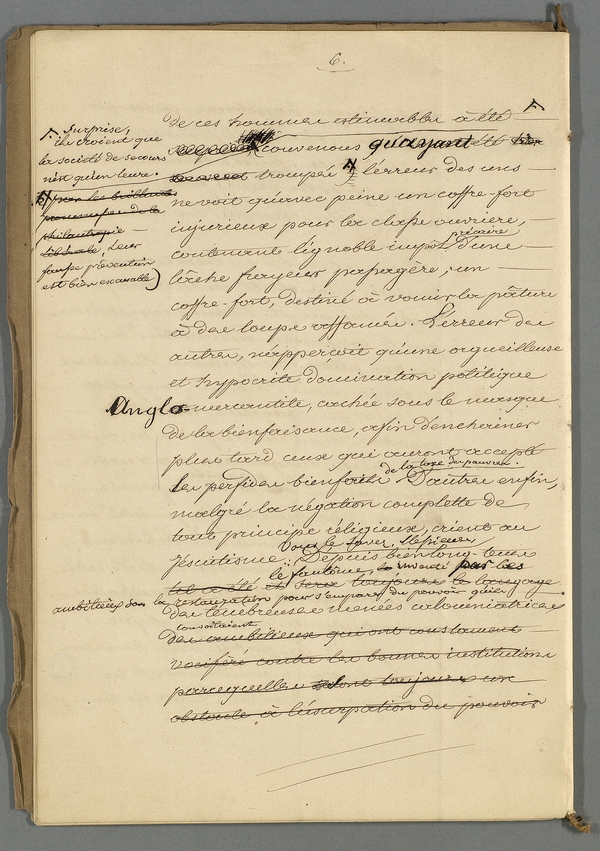 6.
de ces hommes estimables a été
convenons qu'ayant été
trompée l'erreur des uns
ne voit qu'avec peine un coffre-fort
injurieux pour la classe ouvrière,
contenant l'ignoble impôt d'une
précaire
lâche frayeur passagère; un
coffre-fort, destiné à vomir la pâture
à des loups affamés. L'erreur des
autres, n'apperçoit qu'une orgueilleuse
et hypocrite domination politique
Anglo-mercantile, cachée sous le masque
de la bienfaisance, afin d'enchainer
plus tard ceux qui auront accepté
les perfides bienfaits de la taxe des pauvres.
D'autres enfin,
malgré la négation complette de
tout principe réligieux, crient au
Jésuitisme. Vous le savez, Messieurs
Dépuis bien long-tems
le fantôme, inventé par les
tel a été toujours le langage
ambitieux de la restauration pour s'emparer du pouvoir qu'ils
des ténébreuses menées calomniatrices
convoitaient
des ambitieux qui ont constament
vociféré contre les bonnes institutions
parcequ'elles sont toujours un
obstacle à l'usurpation du pouvoir
Surprise,
ils croient que
la société de secours
n'est qu'un leurre.
par les brillants
promesses de la
philantropie
libérale, Leur
fausse prévention
est bien excusable)